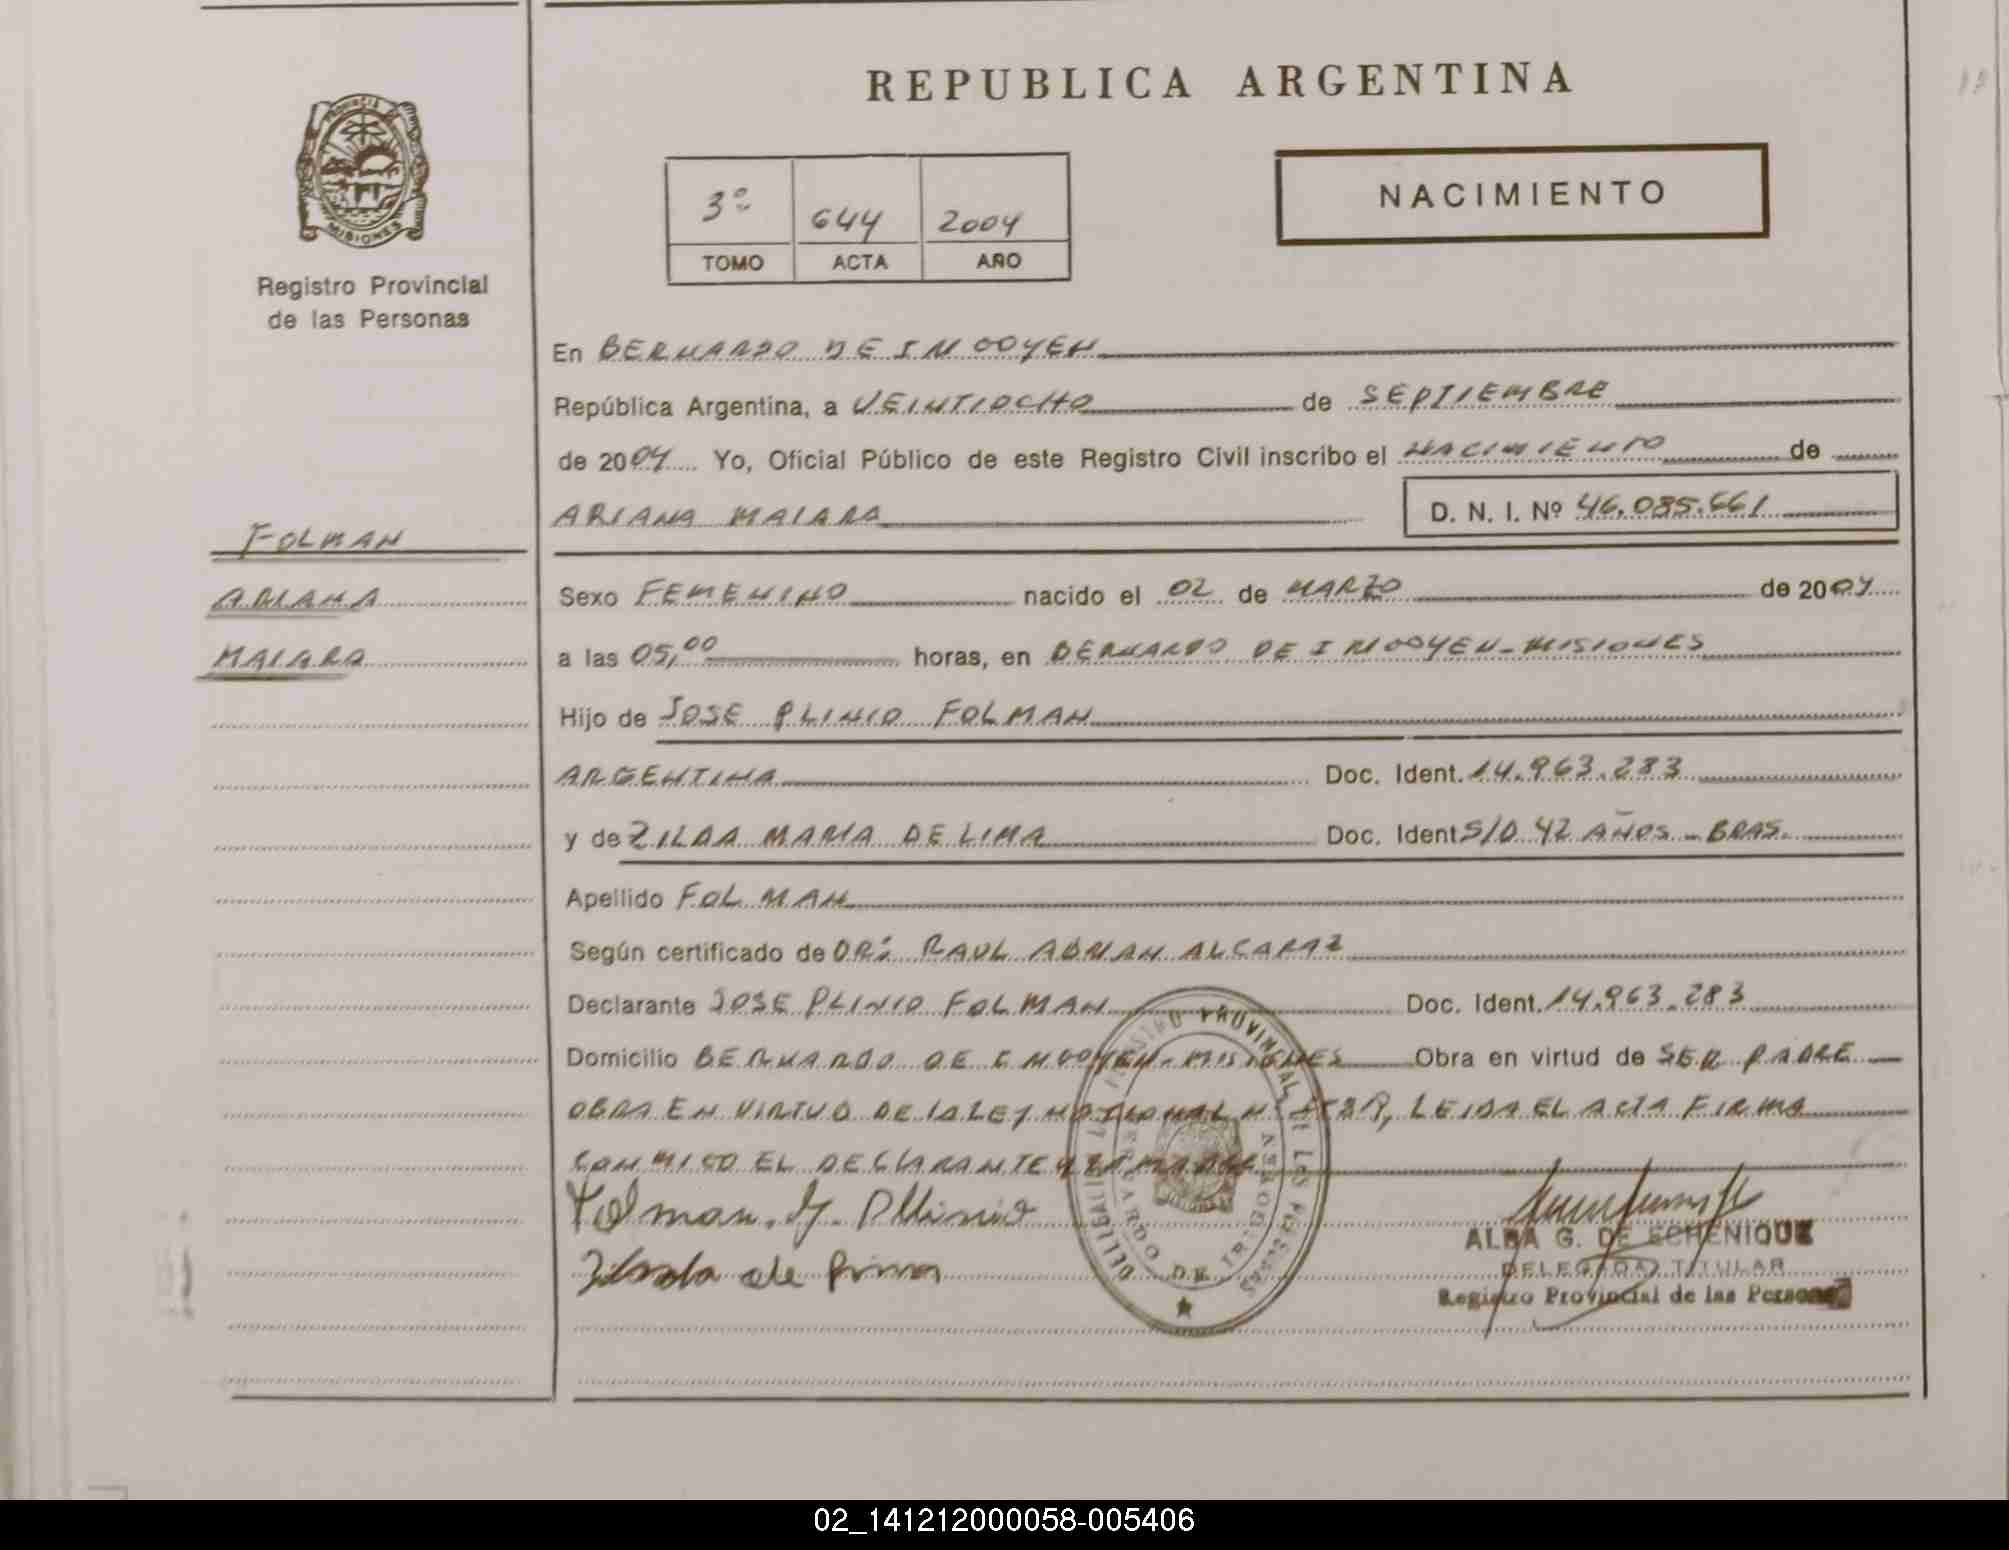 REPUBLICA ARGENTINA
PROVINCIA DE MISIONES
Registro Provincial
de las Personas
3º 644 2004
TOMO ACTA AÑO
NACIMIENTO
En BERNARDO DE IRIGOYEN
República Argentina, a VEINTIOCHO de SEPTIEMBRE
de 2004 Yo, Oficial Público de este Registro Civil inscribo el NACIMIENTO de
ARIANA MAIARA D. N. I. Nº 46.085.661
FOLMAN
ARIANA
MAIARA
Sexo FEMENINO nacido el 02 de MARZO de 2004
a las 05,00 horas, en BERNARDO DE IRIGOYEN-MISIONES
Hijo de JOSE PLINIO FOLMAN
ARGENTINA Doc. Ident. 14.963.283
y de ZILDA MARIA DE LIMA Doc. Ident S/D 42 AÑOS - BRAS.
Apellido FOLMAN
Según certificado de DR: RAUL ADRIAN ALCARAZ
Declarante JOSE PLINIO FOLMAN Doc. Ident. 14.963.283
Domicilio BERNARDO DE IRIGOYEN-MISIONES Obra en virtud de SER PADRE
OBRA EN VIRTUD DE LA LEY NACIONAL Nº LEIDA EL ACTA FIRMA
CONMIGO EL DECLARANTE Y LA MADRE
Folman. J. Plinio
Zilda de Lima
DELEGACION REGISTRO PROVINCIAL DE LAS PERSONAS
BERNARDO DE IRIGOYEN
ALBA G. DE ECHENIQUE
DELEGADA TITULAR
Registro Provincial de las Personas
02_141212000058-005406